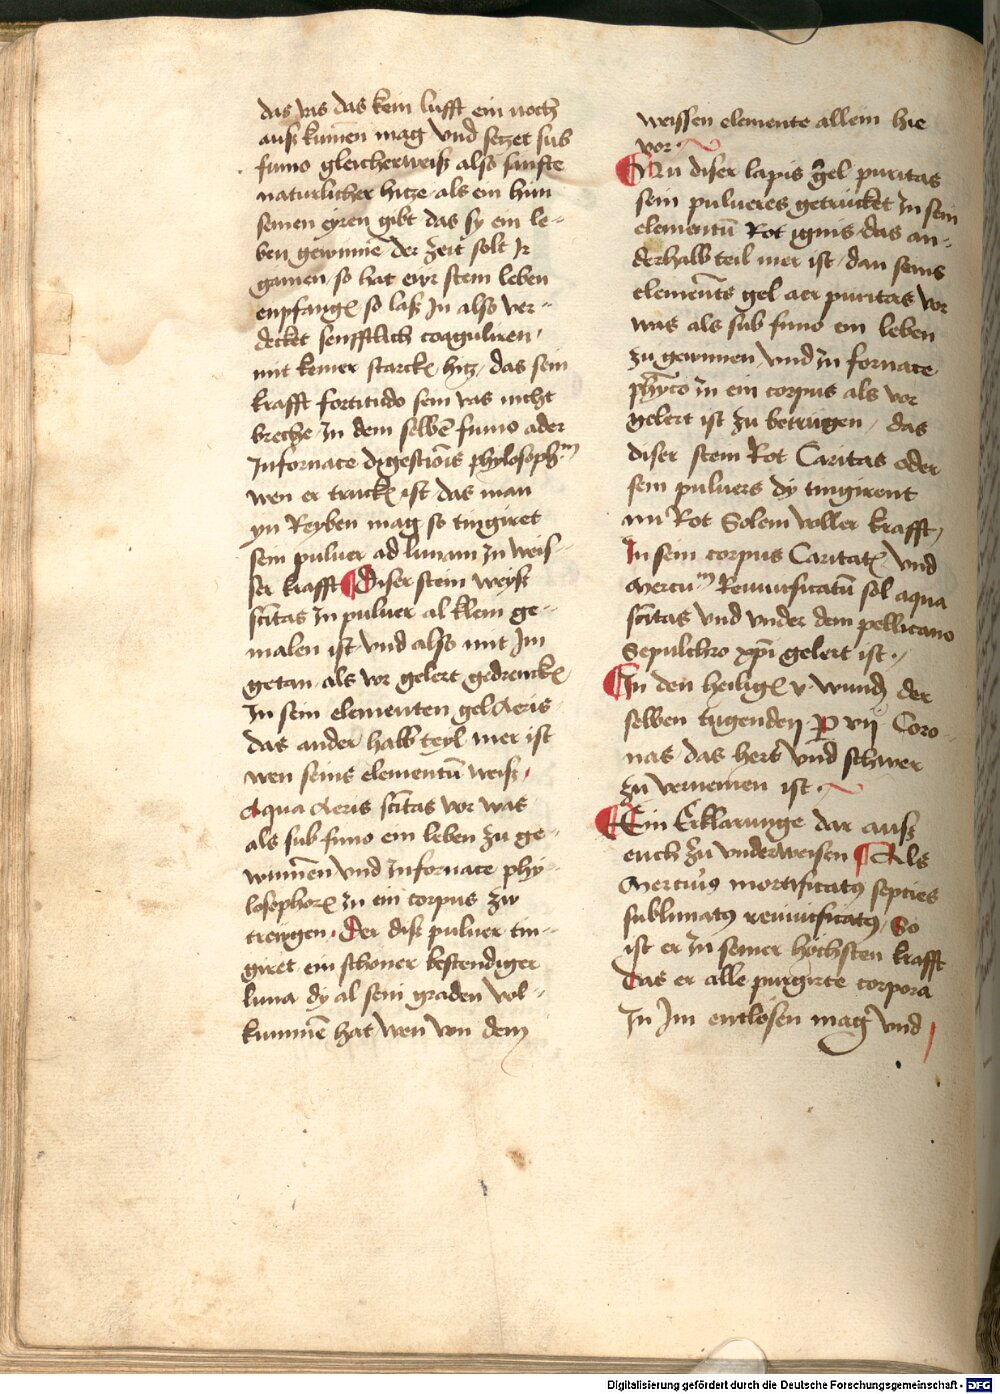 das vas das kein lufft ein noch
auß kumen mag vnd setzet sub
fumo gleicherweiß also sanfte
naturlicher hitze als ein hun
seinen eyren gibt das sy ein le-
ben gewinne der zeit solt Ir
gamen so hat ewr stein leben
enpfangen so laß In also ver-
decket senfftlich coaguliren
mit keiner starcken hitz das sein
krafft fortitudo sein vas nicht
breche In dem selben fumo ader
Infornace digestionis phylosophorum
wen er trucken ist das man
yn Reyben mag so tingiret
sein puluer ad lunam zu weis-
ser krafft Diser stein weyß
scitas In puluer al klein ge-
malen ist vnd also mit Im
getan als vor gelert gedrencken
In sein elementen gel Aeris
das ander halb teyl mer ist
wen seins elementum weiß
Aqua Aeris scitas vor was
als sub fumo ein leben zu ge-
winnen vnd Infornace phy-
losophorum zu ein corpus zw
trewgen Der diß puluer tin-
giret ein schoner bestendiger
luna dy al sein graden vol-
kummen hat wen von dem
weissen elemente allein hie
vor
Nu diser lapis gel puritas
sein pulueres getrucket In sein
elementum Rot ignis das an-
derhalb teil mer ist dan seins
elements gel aer puritas vor
was als sub fumo ein leben
zu gewinnen vnd in fornace
physico in ein corpus als vor
gelert ist zu betrugen das
diser stein Rot Caritas oder
sein puluers dy tingirent
nu Rot Solem voller krafft
In sein corpus Caritaten vnd
mercurium Reuiuificatum sol aqua
scitas vnd vnder dem pellicano
Sepulchro xpi gelert ist
In den heiligen v wunden der
selben tugenden P vij Coro-
nas das hert vnd schwer
zu vernemen ist
Ein Erklarunge dar auß
euch zu vnderweisen Als
Mercurius mortificatus septies
sublimatus reuiuificatus So
ist er In seiner hochsten krafft
das er alle purgirte corpora
In Im entlosen mag vnd
Digitalisierung gefördert durch die Deutsche Forschungsgemeinschaft - DFG